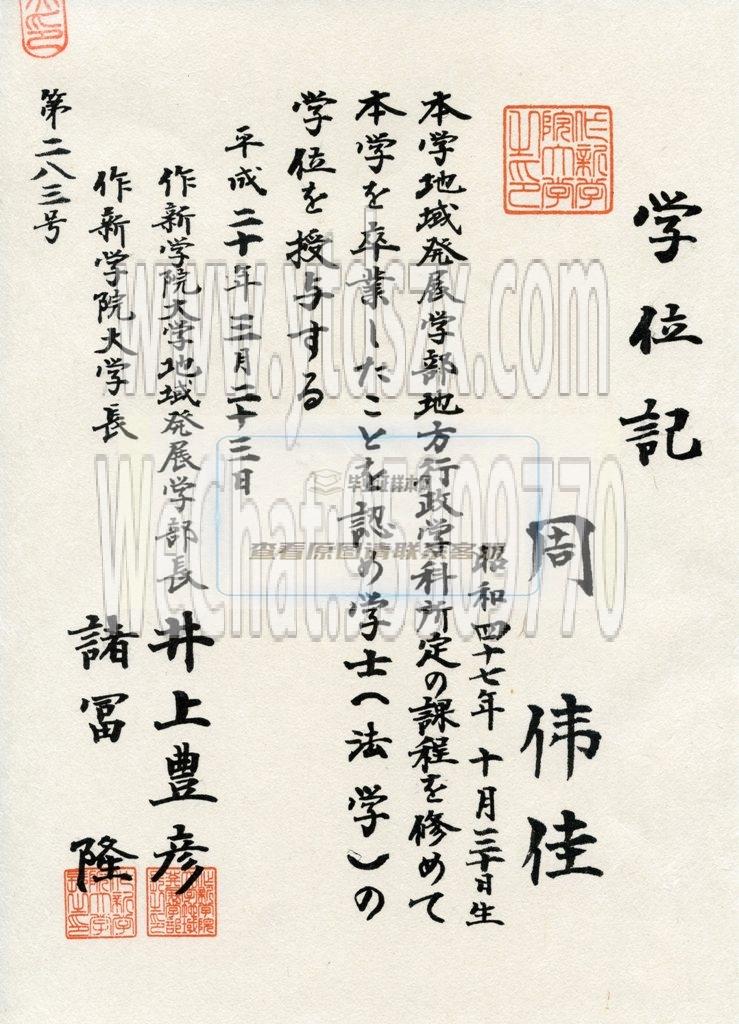 学位記
周 伟佳
昭和四十七年十月三十日生
本学地域発展学部地方行政学科所定の課程を修めて
本学を卒業したことを認め学士(法学)の
学位を授与する
平成二十年三月二十三日
作新学院大学地域発展学部長 井上豊彦
作新学院大学長 諸冨 隆
第二八三号
作新学院大学之印
www.ytqszx.com
查看原图请联系客服